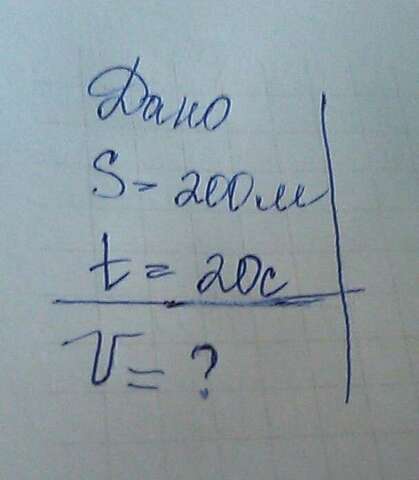 Дано
S = 200м
t = 20с
V = ?